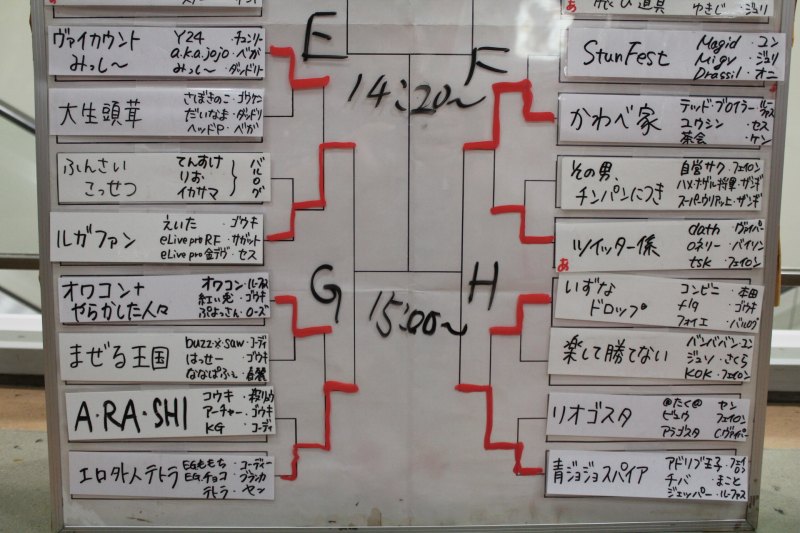 ゆきじ・ジュリ
E
ヴァイカウント
みっし〜
Y24 チュンリー
a.k.a.jojo・ベガ
みっし〜・ダッドリー
大生頭茸
さばきのこ・ゴウケン
だいなま・ダッドリー
ヘッドP・ベガ
ふんさい
こっせつ
てんすけ
りお
イカサマ
バルログ
ルガファン
えいた・ゴウキ
eLive pro RF・サガット
eLive pro 金デヴ・セス
G
オワコン+
やらかした人々
オワコン・ルーファス
紅い兎・ゴウキ
ぷよっさん・ローズ
まぜる王国
buzz×saw・コーディ
はっせー・ゴウキ
ななぱふぇ・春麗
A・RA・SHI
コウキ・殺リュウ
アーチャー・ゴウキ
KG・コーディ
エロ外人テトラ
EGももち・コーディー
EGチョコ・ブランカ
テトラ・ヤン
14:20〜
15:00〜
F
飛び道具
StunFest
Magid・ユン
Migv・ジュリ
Drassil・オニ
かわべ家
テッド・ブロイラー・ルーファス
ユウシン・セス
茶会・ケン
その男、
チンパンにつき
自営サク・フェイロン
ハメナザル将軍・ザンギ
スーパーウリアッ上・ザンギ
ツイッター係
あ
dath・ヴァイパー
ロネリー・バイソン
tsk・フェイロン
H
いずな
ドロップ
コンビニ・本田
fla・ゴウキ
フォイエ・バルログ
楽して勝てない
バンババン・ユン
ジュソ・さくら
KOK・フェイロン
リオゴスタ
@たく@ ヤン
ピュウ フェイロン
アラゴスタ C.ヴァイパー
青ジョジョスパイア
アドリブ王子・フェイロン
チバ・まこと
ジェッパー・ルーファス